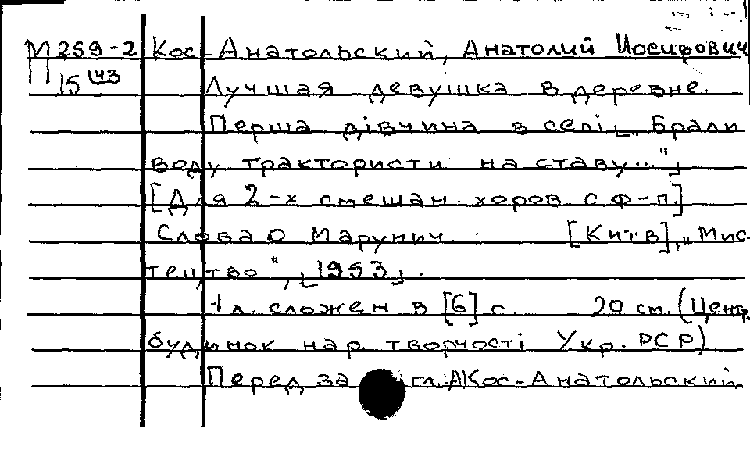 М 259-2 Кос-Анатольский, Анатолий Иосифович
15 143 Лучшая девушка в деревне.
Перша дівчина в селі. „Брали
воду трактористи на ставу.."
[Для 2-х смешан хоров с ф-п]
Слова О Марунич. [Київ], „Мис
тецтво", 1953.
1 л. сложен в [6] с. 20 см. (Центр.
будинок нар творчості Укр. РСР)
Перед за гл. А Кос-Анатольский